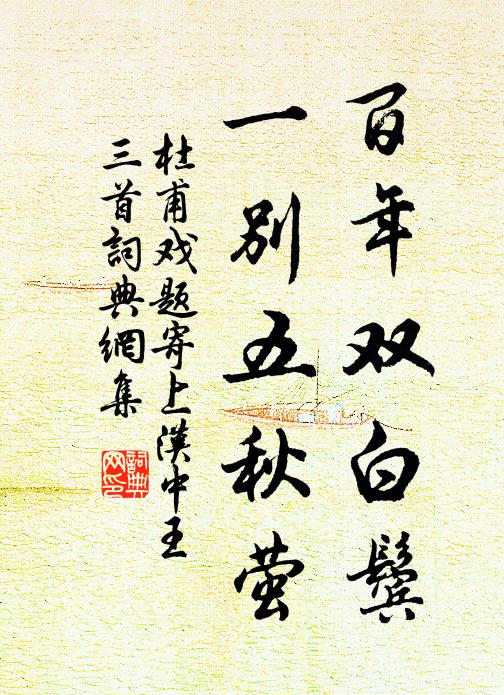 百年双白鬓
一别五秋萤
杜甫戏题寄上漢中王
三首詞典網集
詞典
网印